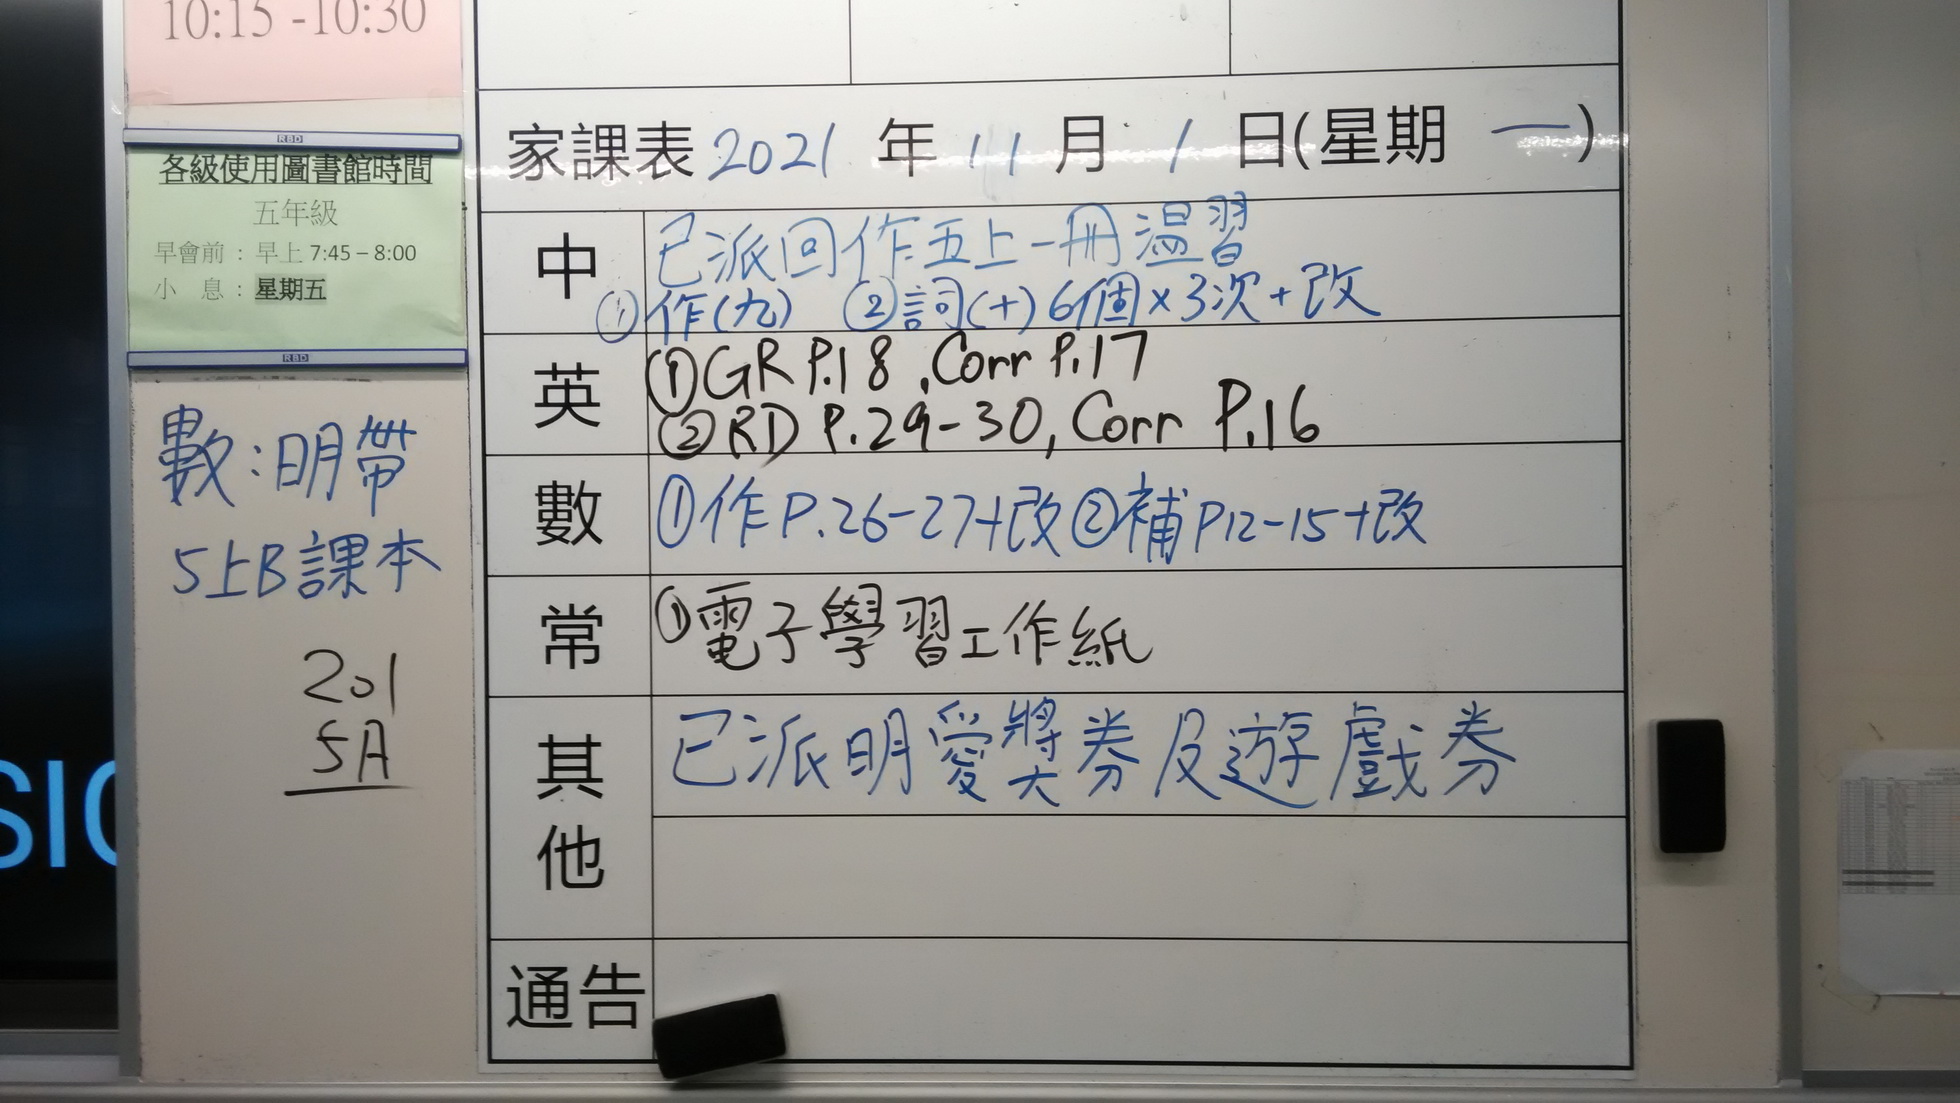 10:15 -10:30
RBD
各級使用圖書館時間
五年級
早會前：早上 7:45 – 8:00
小 息：星期五
RBD
數:明帶
5上B課本
201
5A
SIC
家課表 2021 年 11 月 1 日(星期 一)
中
已派回作五上一冊溫習
①作(九) ②詞(十)6個×3次+改
英
①GR P.18, Corr P.17
②RD P.29-30, Corr P.16
數
①作P.26-27+改②補P12-15+改
常
①電子學習工作紙
其他
已派明愛獎券及遊戲券
通告